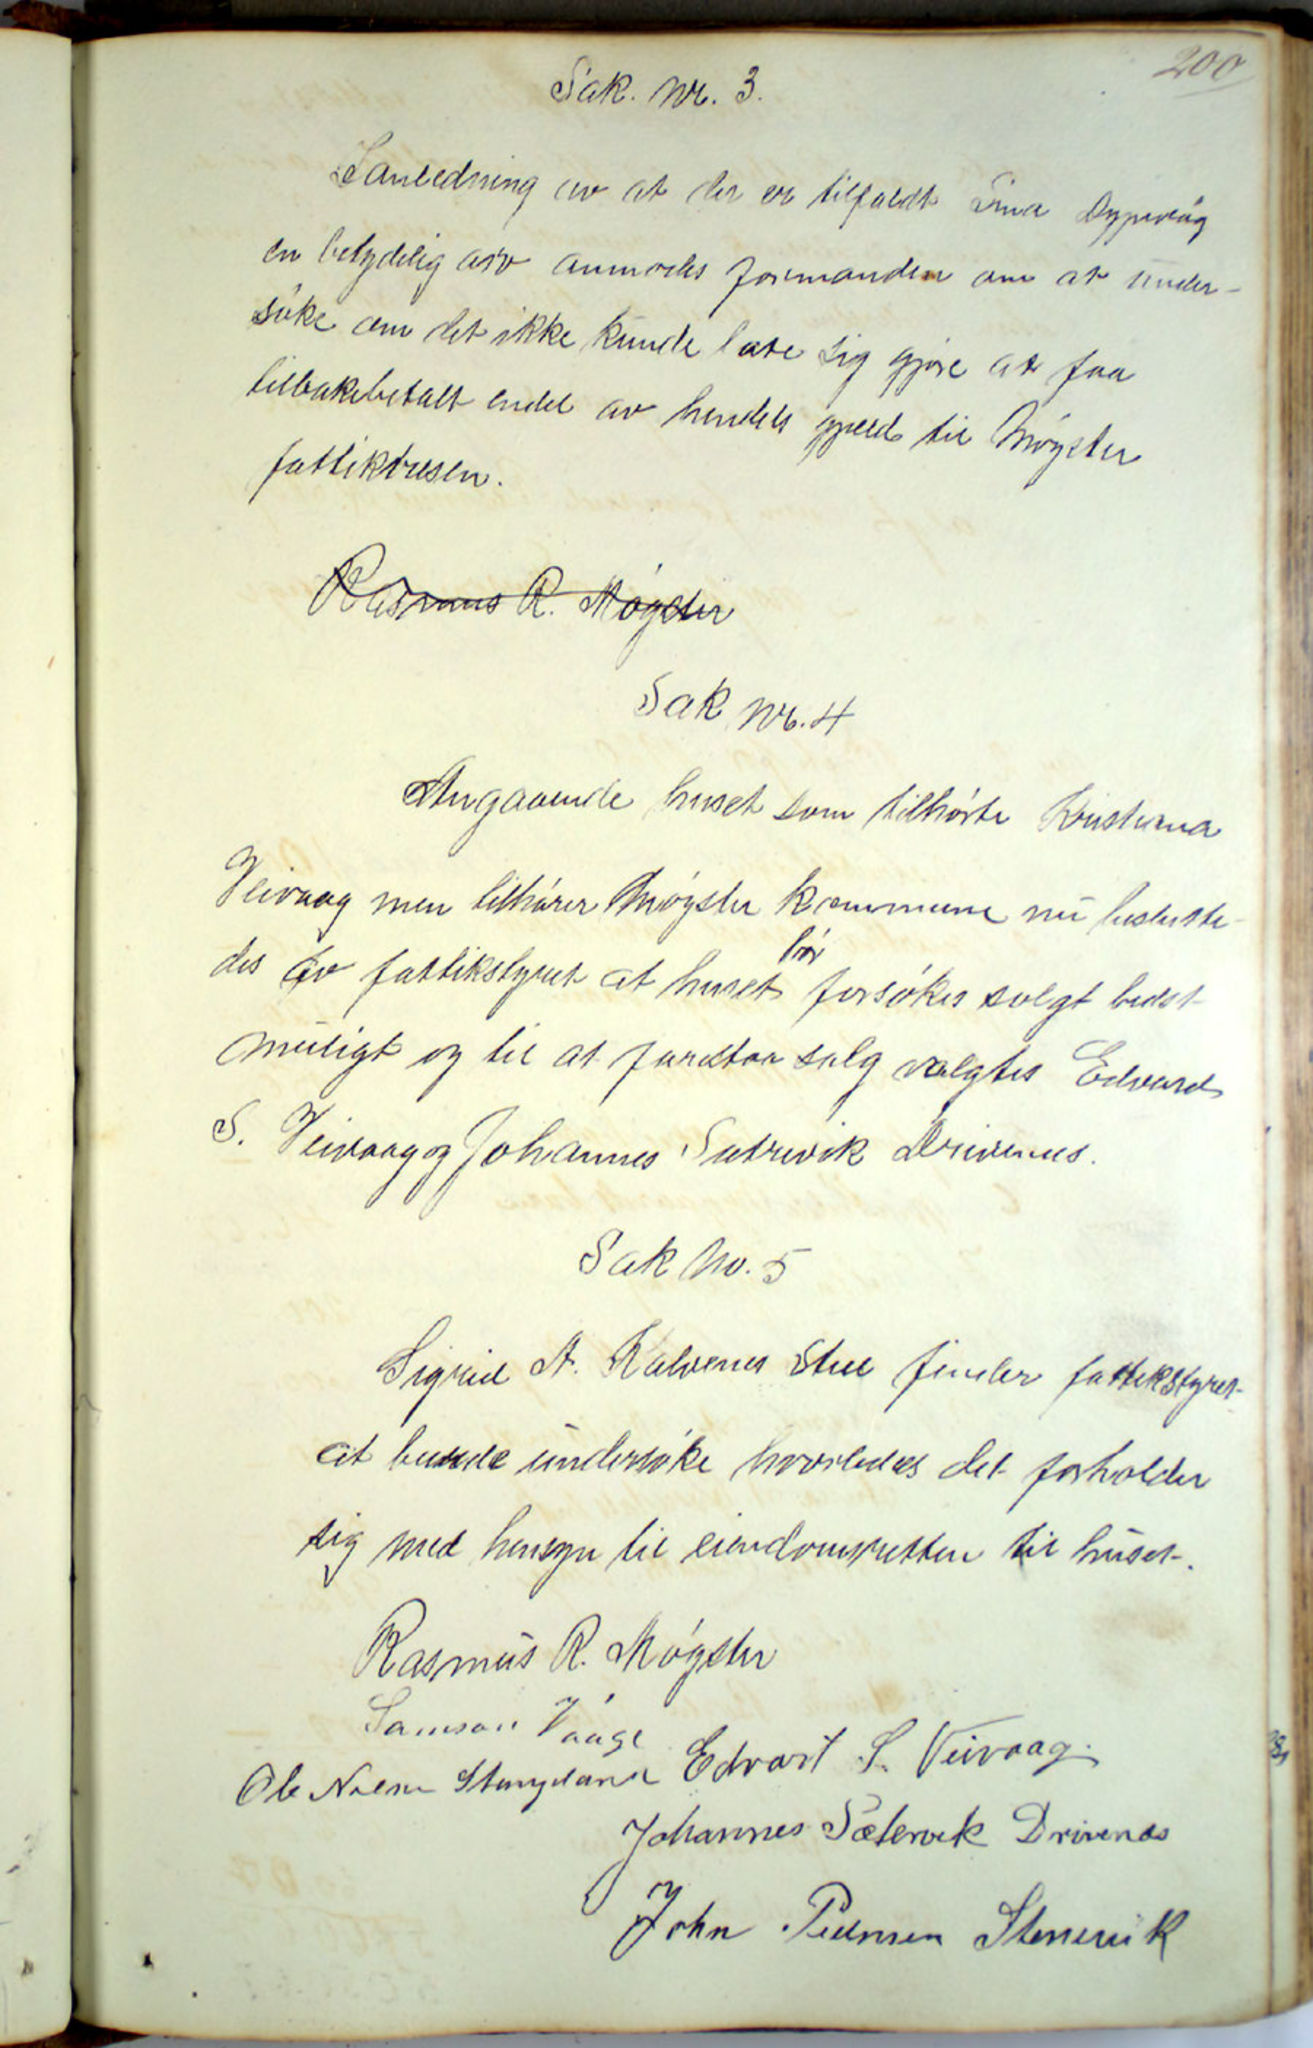 200
Sak. Nr. 3.
I anledning av at der er tilfaldt Sina Dypevåg
en betydelig arv anmodes formanden om at under-
søke om det ikke kunde late sig gjøre at faa
tilbakebetalt endel av hendes gjæld til Møgster
fattikvæsen.
Rasmus R. Møgster
Sak Nr. 4
Angaaende huset som tilhørte Kristiana
Veivaag men tilhører Møgster kommune nu beslutte-
des av fattikstyret at huset bør forsøkes solgt bedst
muligt og til at forestaa salg valgtes Edvard
S. Veivaag og Johannes Sætrevik Drivenes.
Sak No. 5
Sigrid A. Kalvenes Stue finder fattikstyret
at burde undersøke hvorledes det forholder
sig med hensyn til eiendomsretten til huset.
Rasmus R. Møgster
Samson Våge
Ole Nilsen Stangeland Edvart S. Veivaag.
Johannes Sætervik Drivenes
John Pedersen Stenevik